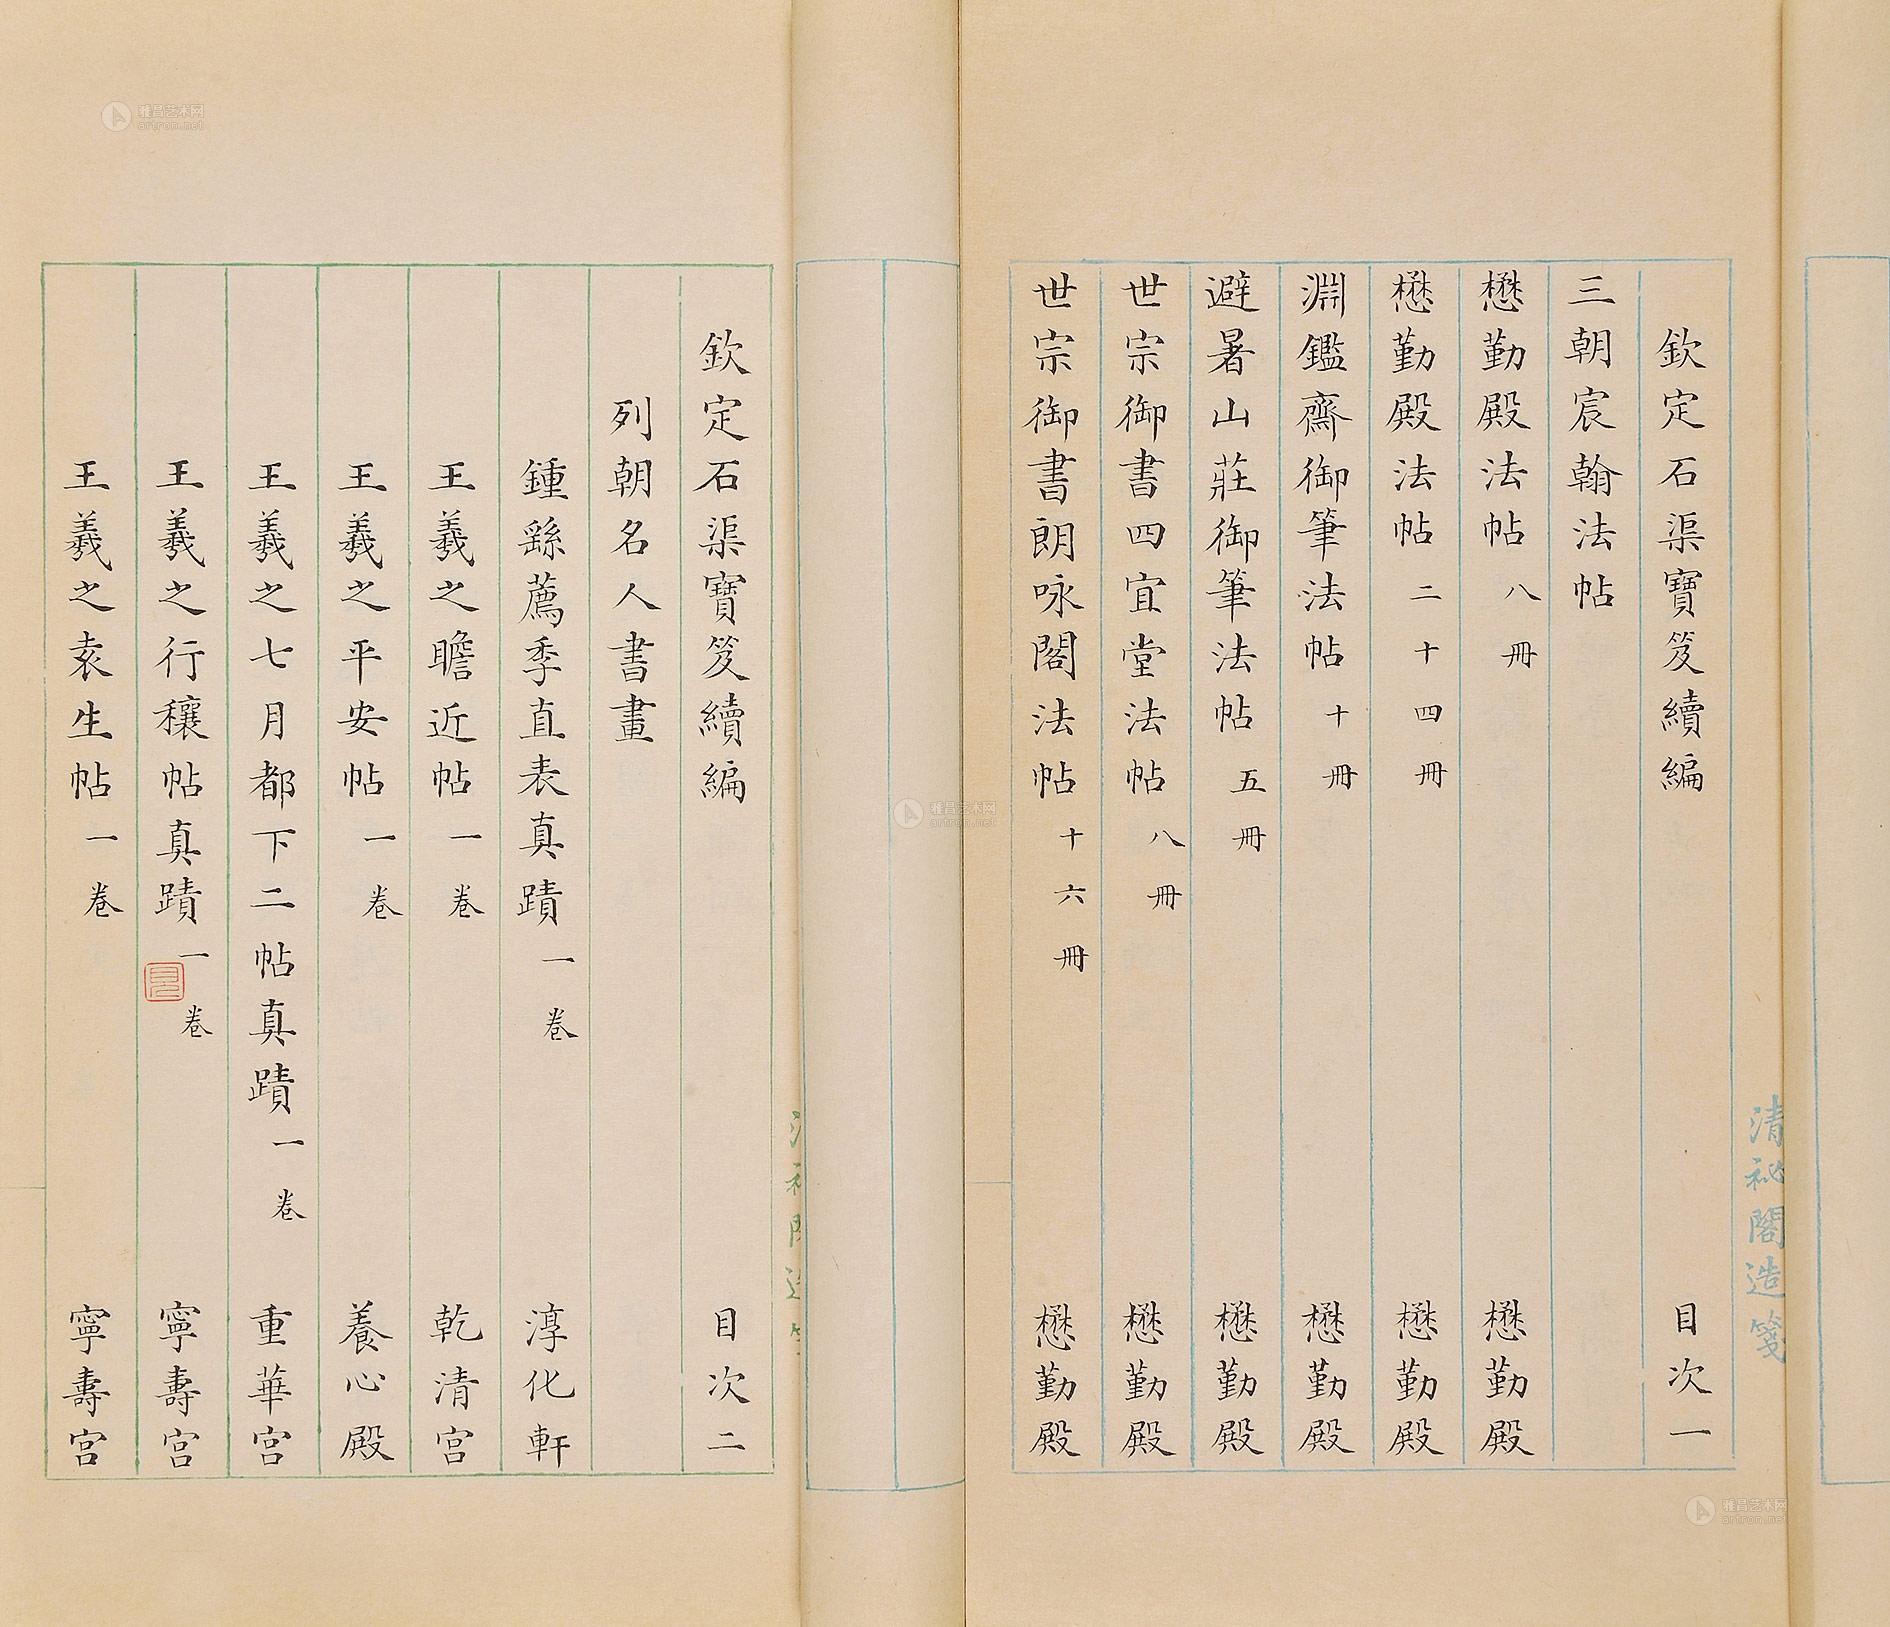 欽定石渠寶笈續編 目次一
三朝宸翰法帖
懋勤殿法帖 八冊 懋勤殿
懋勤殿法帖 二十四冊 懋勤殿
淵鑑齋御筆法帖 十冊 懋勤殿
避暑山莊御筆法帖 五冊 懋勤殿
世宗御書四宜堂法帖 八冊 懋勤殿
世宗御書朗咏閣法帖 十六冊 懋勤殿
清祕閣造箋
欽定石渠寶笈續編 目次二
列朝名人書畫
鍾繇薦季直表真蹟 一卷 淳化軒
王羲之瞻近帖 一卷 乾清宮
王羲之平安帖 一卷 養心殿
王羲之七月都下二帖真蹟 一卷 重華宮
王羲之行穰帖真蹟 一卷 寧壽宮
王羲之袁生帖 一卷 寧壽宮
雅昌艺术网
artron.net
雅昌艺术网
artron.net
雅昌艺术网
artron.net